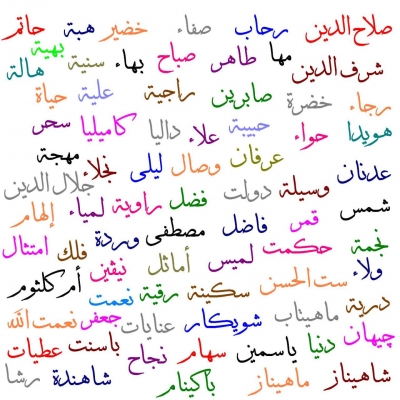 صلاح الدين رحاب صفاء خضير هبة حاتم
شرف الدين مها طاهر صباح بهاء سنية بهية هالة
رجاء خضرة صابرين راجية علية حياة
هويدا حواء حبيبة علاء داليا كاميليا سحر
عدنان وسيلة عرفان وصال ليلى نجلاء مهجة جلال الدين
شمس قمر دولت فضل راوية لمياء إلهام
نجمة حكمت فاضل مصطفى وردة فلك امتثال
ولاء ست الحسن لميس أماثل نيفين أم كلثوم
درية ماهيتاب سكينة رقية نعمت
جيهان دنيا شويكار عنايات جعفر نعمت الله
شاهيناز ماهيناز ياسمين سهام نجاح باسنت عطيات
باكينام شاهندة رشا